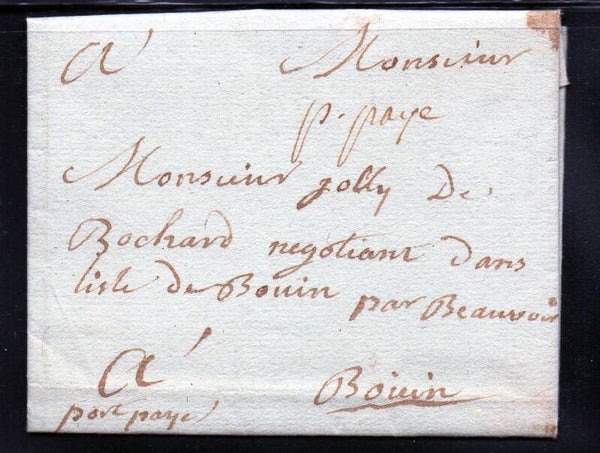 A Monsieur
p. paye
Monsieur Jolly De
Bochard negotiant dans
lisle de Bouin par Beauvoir
A Bouin
port payé